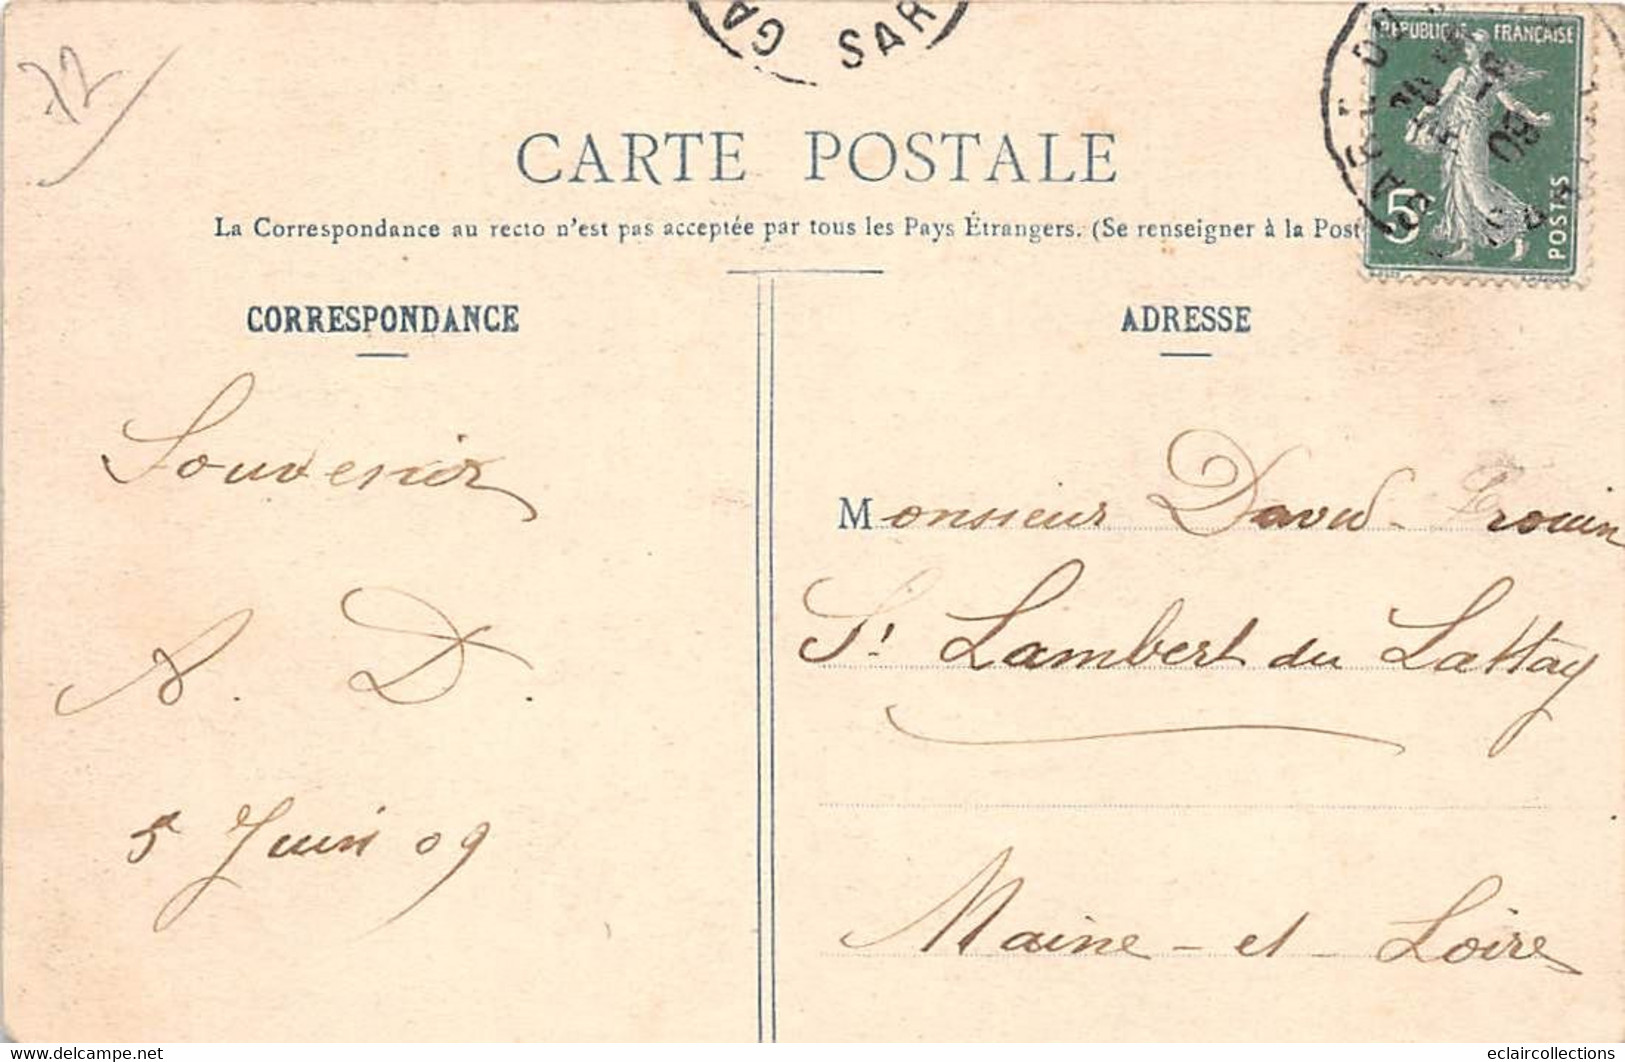 72
GA SAR
RÉPUBLIQUE FRANÇAISE
5
POSTES
CARTE POSTALE
La Correspondance au recto n'est pas acceptée par tous les Pays Étrangers. (Se renseigner à la Post
CORRESPONDANCE
ADRESSE
Souvenir
A. D.
5 Juin 09
Monsieur David
St Lambert du Lattay
Maine-et-Loire
eclaircollections